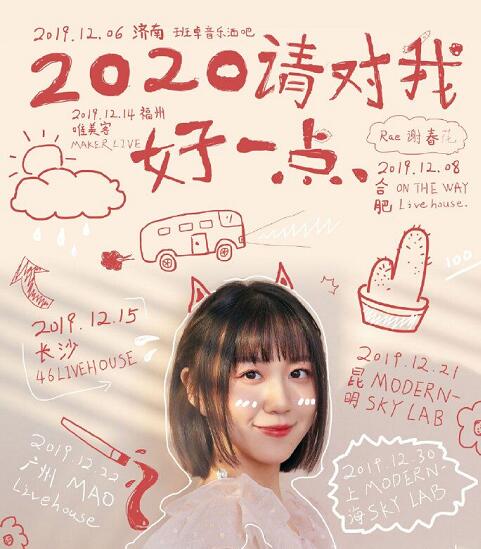 2019.12.06 济南 班卓音乐酒吧
2020请对我
好一点、
2019.12.14 福州
唯美客
MAKER LIVE
Rae 谢春花
2019.12.08
合肥 ON THE WAY
Livehouse.
100
2019.12.15
长沙
46LIVEHOUSE
2019.12.21
昆明 MODERN-
SKY LAB
2019.12.22
广州 MAO
Livehouse
2019.12.30
上海 MODERN-
SKY LAB